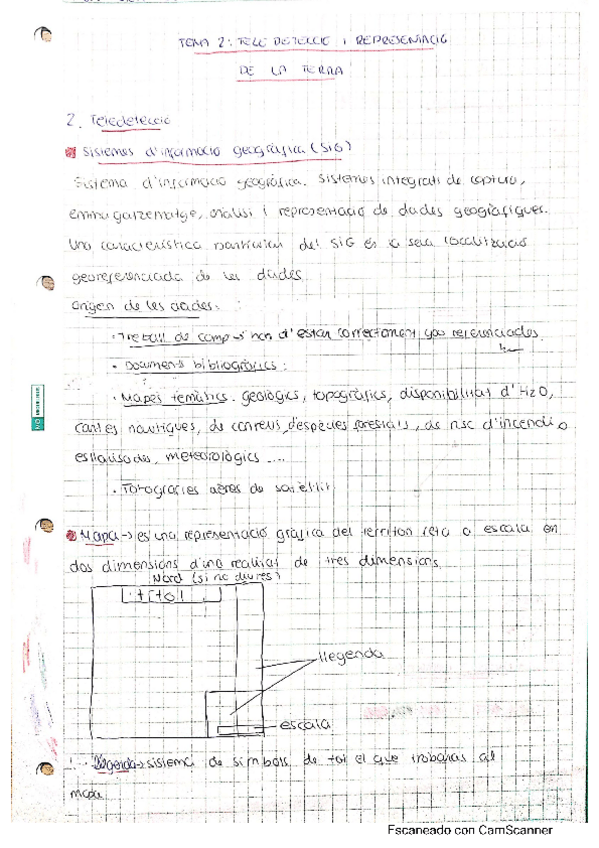 TEMA 2: TELEDETECCIÓ I REPRESENTACIÓ
DE LA TERRA
2. Teledetecció
Sistemes d'informació geogràfica (SIG)
Sistema d'informació geogràfica. Sistemes integrats de captura,
emmagatzematge, anàlisi i representació de dades geogràfiques.
Una característica particular del SIG és la seva localització
georeferenciada de les dades
Origen de les dades:
· Treball de camp → han d'estar correctament georeferenciades
· Documents bibliogràfics:
· Mapes temàtics. geològics, topogràfics, disponibilitat d'H2O,
cartes nàutiques, de conreus, d'espècies forestals, de risc d'incendi o
esllavissades, meteorològics ....
· Fotografies aèries de satèl·lit
Mapa → és una representació gràfica del territori feta a escala en
dos dimensions d'una realitat de tres dimensions
Nord (si no diu res)
títol
llegenda
escala
llegenda → sistema de símbols de tot el que trobaràs al
mapa
Escaneado con CamScanner